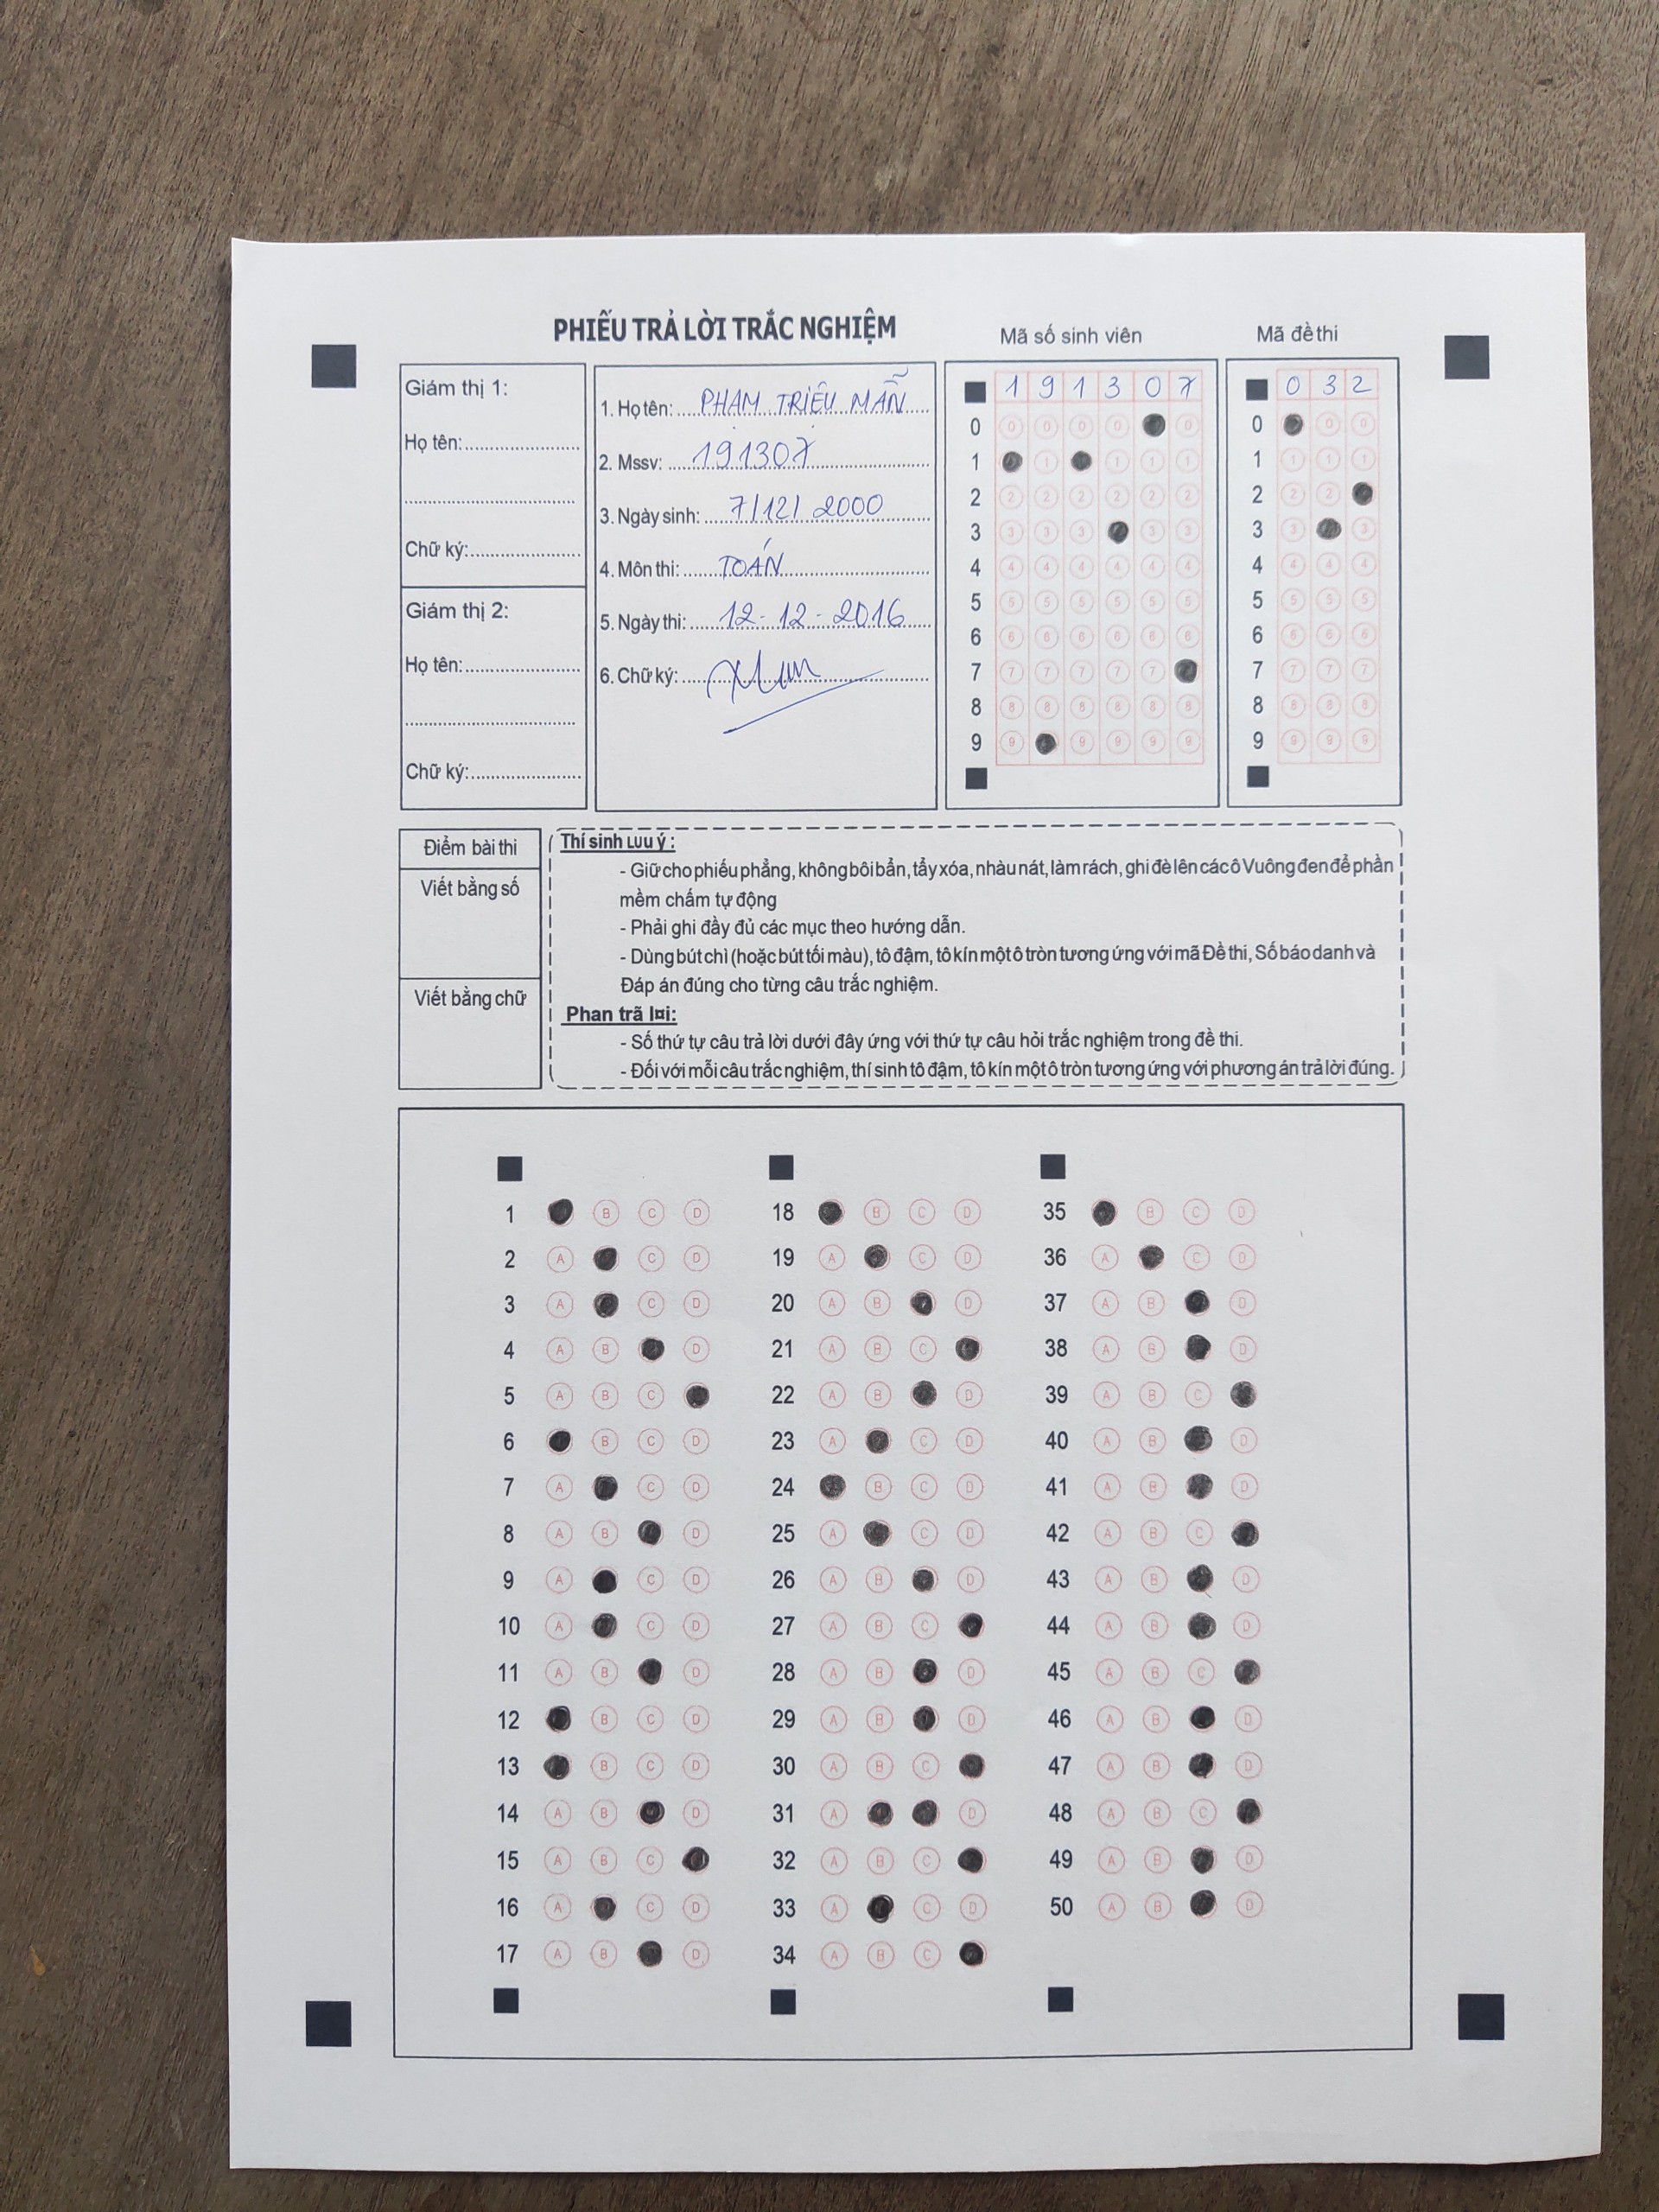 PHIẾU TRẢ LỜI TRẮC NGHIỆM
Mã số sinh viên
Mã đề thi
Giám thị 1:
Họ tên:
Chữ ký:
Giám thị 2:
Họ tên:
Chữ ký:
1. Họ tên: PHẠM TRIỆU MẪN
2. Mssv: 191307
3. Ngày sinh: 7/12/2000
4. Môn thi: TOÁN
5. Ngày thi: 12-12-2016
6. Chữ ký:
1 9 1 3 0 7
0 0 0 0 0 0
1 1 1 1 1
2 2 2 2 2 2 2
3 3 3 3 3 3
4 4 4 4 4 4 4
5 5 5 5 5 5 5
6 6 6 6 6 6 6
7 7 7 7 7 7
8 8 8 8 8 8 8
9 9 9 9 9 9
0 3 2
0 0 0
1 1 1 1
2 2 2
3 3 3
4 4 4 4
5 5 5 5
6 6 6 6
7 7 7 7
8 8 8 8
9 9 9 9
Điểm bài thi
Viết bằng số
Viết bằng chữ
Thí sinh Lưu ý :
- Giữ cho phiếu phẳng, không bôi bẩn, tẩy xóa, nhàu nát, làm rách, ghi đè lên các ô Vuông đen để phần
mềm chấm tự động
- Phải ghi đầy đủ các mục theo hướng dẫn.
- Dùng bút chì (hoặc bút tối màu), tô đậm, tô kín một ô tròn tương ứng với mã Đề thi, Số báo danh và
Đáp án đúng cho từng câu trắc nghiệm.
Phan trã l¤i:
- Số thứ tự câu trả lời dưới đây ứng với thứ tự câu hỏi trắc nghiệm trong đề thi.
- Đối với mỗi câu trắc nghiệm, thí sinh tô đậm, tô kín một ô tròn tương ứng với phương án trả lời đúng.
1 B C D
2 A C D
3 A C D
4 A B D
5 A B C
6 B C D
7 A C D
8 A B D
9 A C D
10 A C D
11 A B D
12 B C D
13 B C D
14 A B D
15 A B C
16 A C D
17 A B D
18 B C D
19 A C D
20 A B D
21 A B C
22 A B D
23 A C D
24 B C D
25 A C D
26 A B D
27 A B C
28 A B D
29 A B D
30 A B C
31 A D
32 A B C
33 A C D
34 A B C
35 B C D
36 A C D
37 A B D
38 A B D
39 A B C
40 A B D
41 A B D
42 A B C
43 A B D
44 A B D
45 A B C
46 A B D
47 A B D
48 A B C
49 A B D
50 A B D